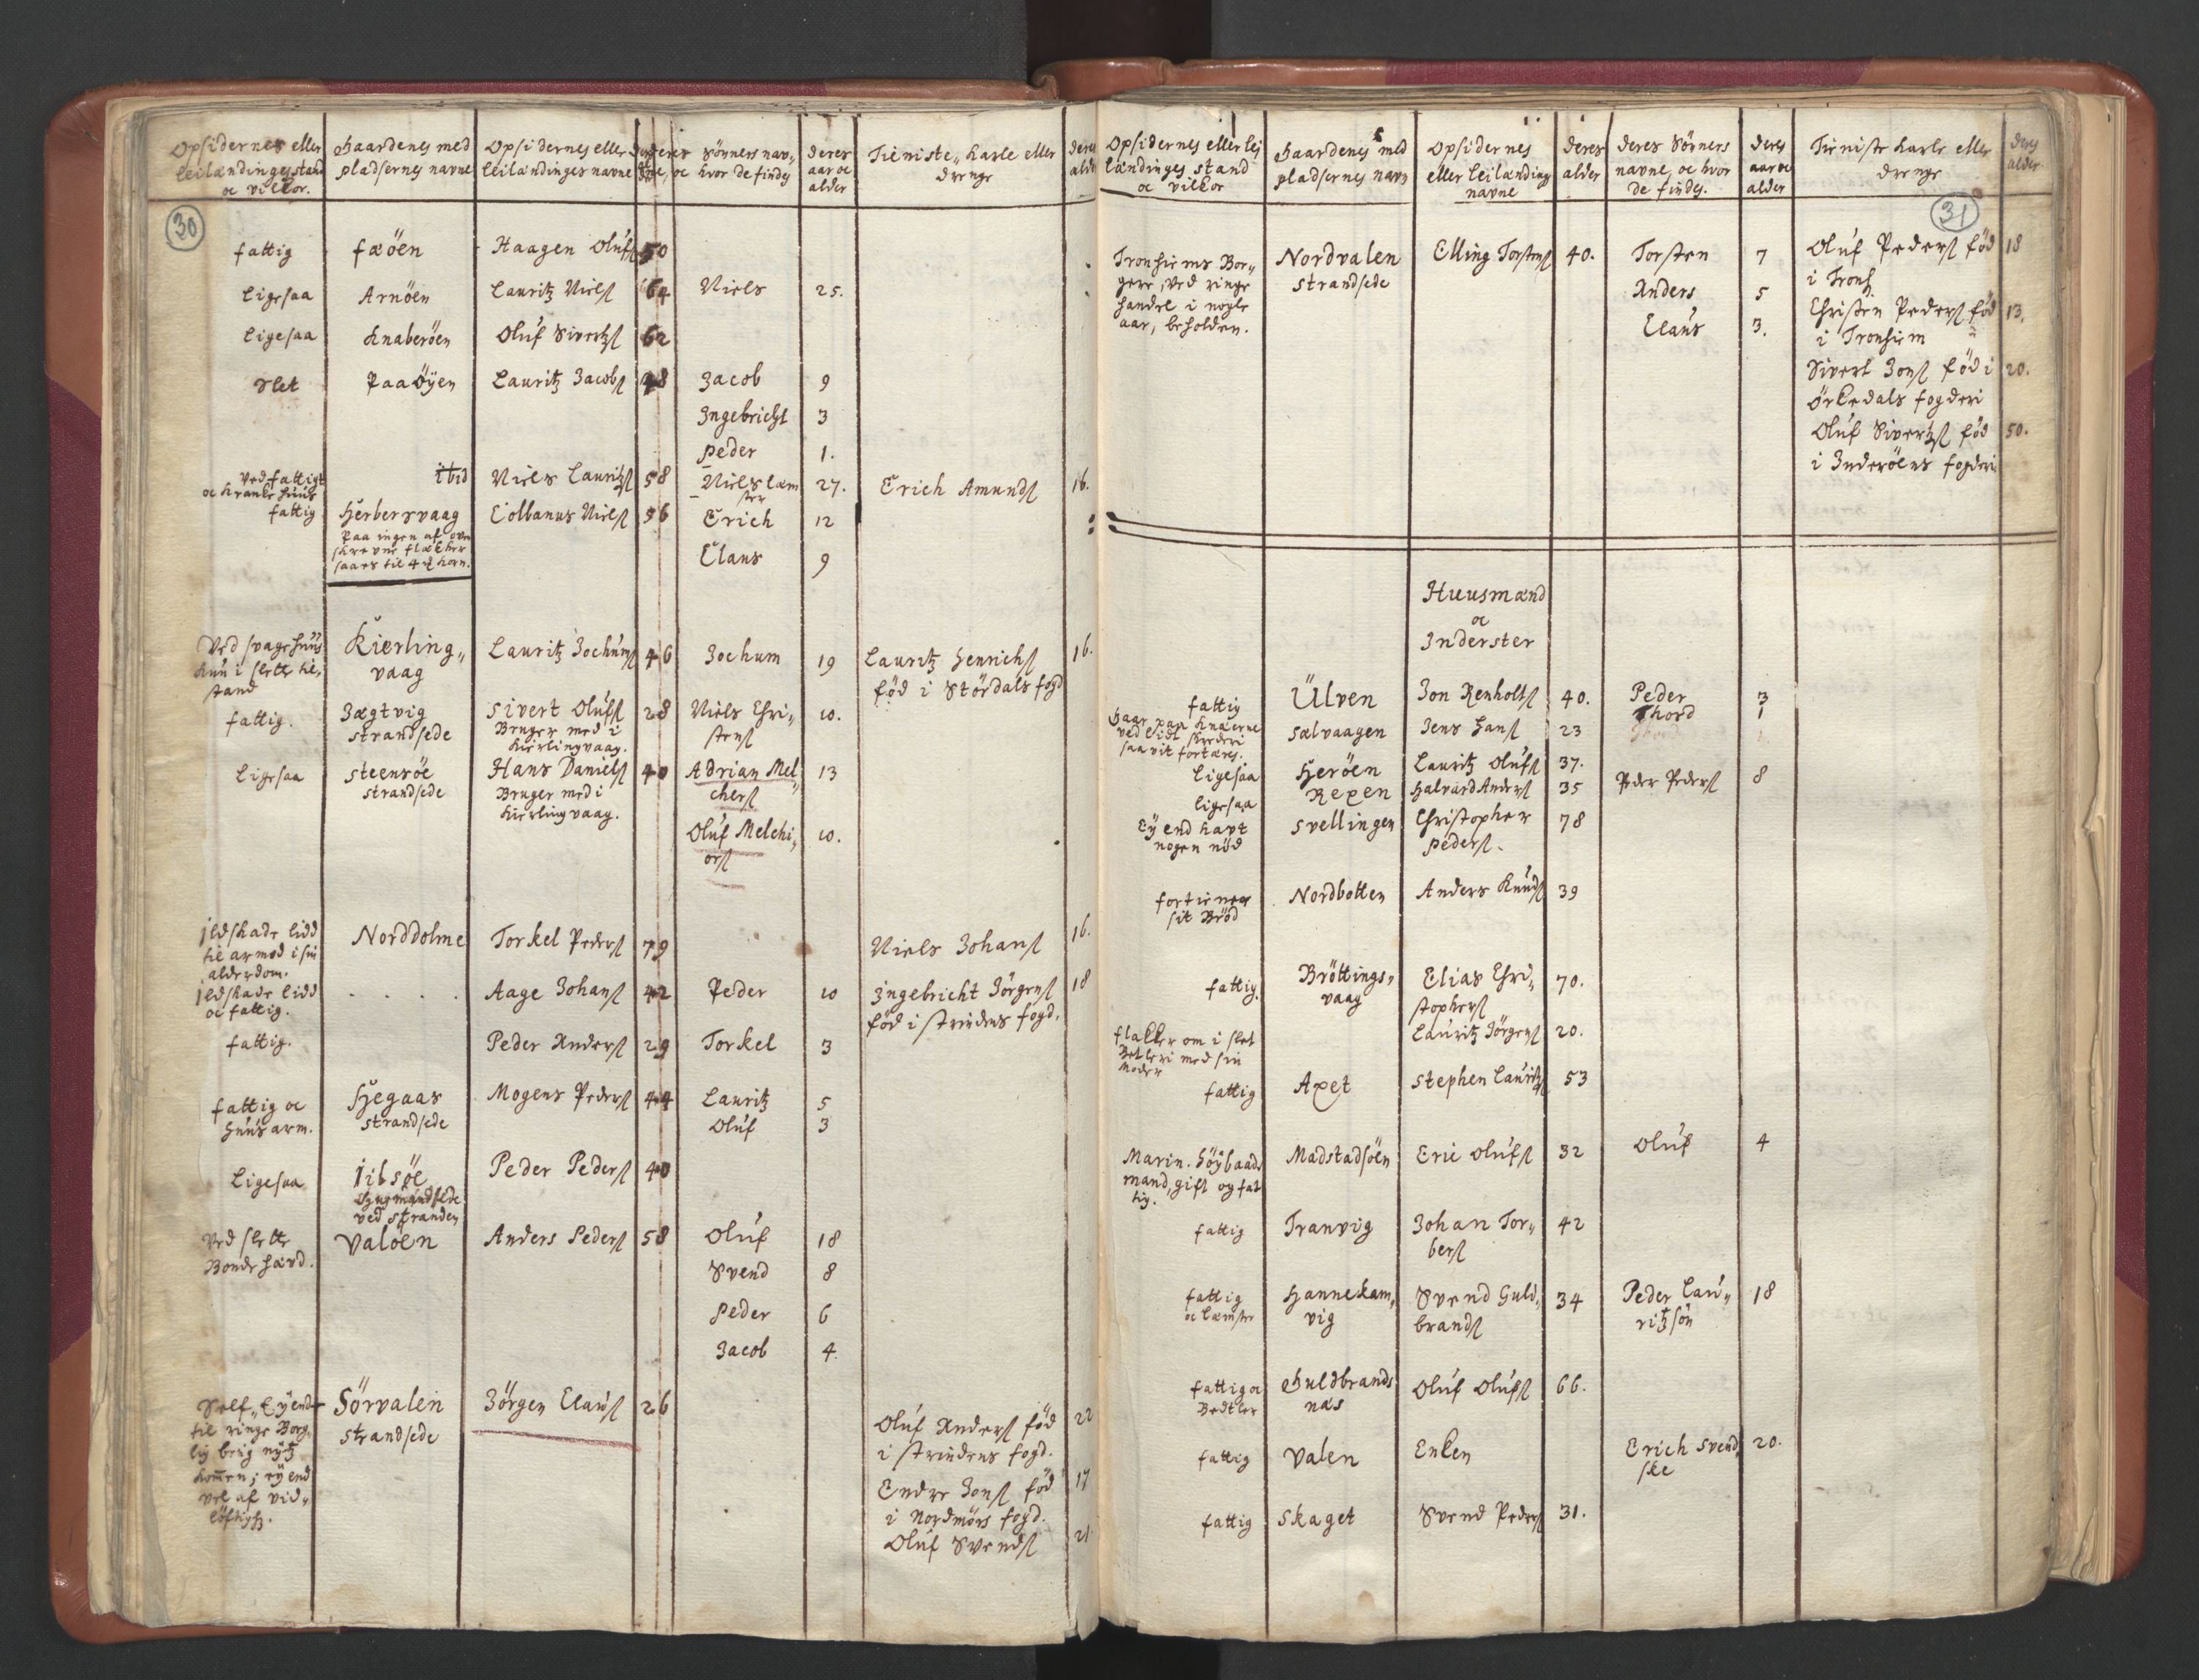 Opsidernes eller
leilændinges stand
oc vilkor.
Gaardenes med
pladsernes navne
Opsidernes eller
leilændinges navne
Sönners nav„
hvor de findes
deres
aar oc
alder
Tieniste„ karle eller
drenge
deres
alder
30
fattig
fæöen
Haagen Olufs
50
ligesaa
Arnöen
Lauritz Niels
64
Niels
25.
ligesaa
Knaberöen
Oluf Sivertz
62
slet
Paaöyen
Lauritz Jacobs
48
Jacob
9
Ingebricht
3
Peder
1.
ved fattigt
oc kranke huus
ibid
Niels Lauritz
58
Niels læm
ster
27.
Erich Amunds
16.
fattig
Herbersvaag
Eolbanus Niels
56
Erich
12
Paa ingen af oven
skrevne flækker
saaes til 4 horn.
Claus
9
Ved svage huus
kun i slette til„
stand
Kierling„
vaag
Lauritz Jochums
46
Jochum
19
Lauritz Henrichs
föd i Stördals fogd
16.
fattig.
Jægtvig
strandsede
Sivert Olufs
Bruger med i
Kierlingvaag.
28
Niels Chri„
stens
10.
Ligesaa
Steensöe
strandsede
Hans Daniels
Bruger med i
Kierlingvaag.
40
Adrian Mel„
chers
13
Oluf Melchi„
ors
10.
ildskade lidd
til armod i sin
alderdom.
Norddolme
Torkel Peders
79
Niels Johans
16.
ildskade lidd
oc fattig.
. . . .
Aage Johans
42
Peder
10
Ingebricht Jörgens
föd i strindens fogd.
18
fattig.
Peder Anders
29
Torkel
3
fattig oc
huus arm.
Hegaas
strandsede
Mogens Peders
44
Lauritz
5
Oluf
3
Ligesaa
Iibsöe
Huusmandsede
ved stranden
Peder Peders
40
Ved slette
Bonde hærd.
Valöen
Anders Peders
58
Oluf
18
Svend
8
Peder
6
Jacob
4
Self„ Eyend
til ringe Borg„
lig brig nytz
kommen; ey end
vel af vid„
löftigh.
Sörvalen
strandsede
Jörgen Claus
26
Oluf Anders föd
i strindens fogd.
22
Endre Jons föd
i Nordmörs fogd.
17
Oluf Svends
21
Opsidernes eller lei
lændinges stand
oc vilkor
Gaardenes med
pladsernes navn
Opsidernes
eller leilændinges
navne
deres
alder
deres Sönners
navne, oc hvor
de findes.
deres
aar oc
alder
Tieniste karle eller
drenge
deres
alder
31
Tronhiems Bor„
gere, ved ringe
handel i nogle
aar, beholden.
Nordvalen
strandsede
Elling Torstens
40.
Torsten
7
Anders
5
Claus
3.
Oluf Peders föd
i Tronh.
18
Christen Peders föd
i Tronhiem
13.
Sivert Jons föd i
Örkedals fogderi
20.
Oluf Sivertz föd
i Inderöens fogderi
50.
Huusmænd
oc
Inderster
fattig
Ulven
Jon Renholts
40.
Peder
3
Thord
1
Haar paa knæerne
ved lidt skrederi
saa vit fortæres.
Sælvaagen
Jens Hans
23
ligesaa
Heröen
Lauritz Olufs
37.
ligesaa
Rexen
Halvard Anders
35
Peder Peders
8
Ey end havt
nogen nöd
Svellingen
Christopher
Peders.
78
fortiener
sit Bröd
Nordbotten
Anders Knuds
39
fattig.
Bröttings„
vaag
Elias Chri„
stophers
70.
flakker om i slet
Betleri med sin
Moder
Lauritz Jörgens
20.
fattig
Axet
Stephen Lauritz
53
Marin. Höybaads
mand, gift og fat
tig.
Madstadsöen
Eric Olufs
32
Oluf
4
fattig
Tranvig
Johan Tor„
bers
42
fattig
oc læmster
Hannekam„
vig
Svend Guld„
brands
34
Peder Lau„
ritzsön
18
fattig oc
Bedtler
Guldbrands
næs
Oluf Olufs
66.
fattig
Valen
Enken
Erich Svend„
ske
20.
fattig
Skaget
Svend Peders
31.